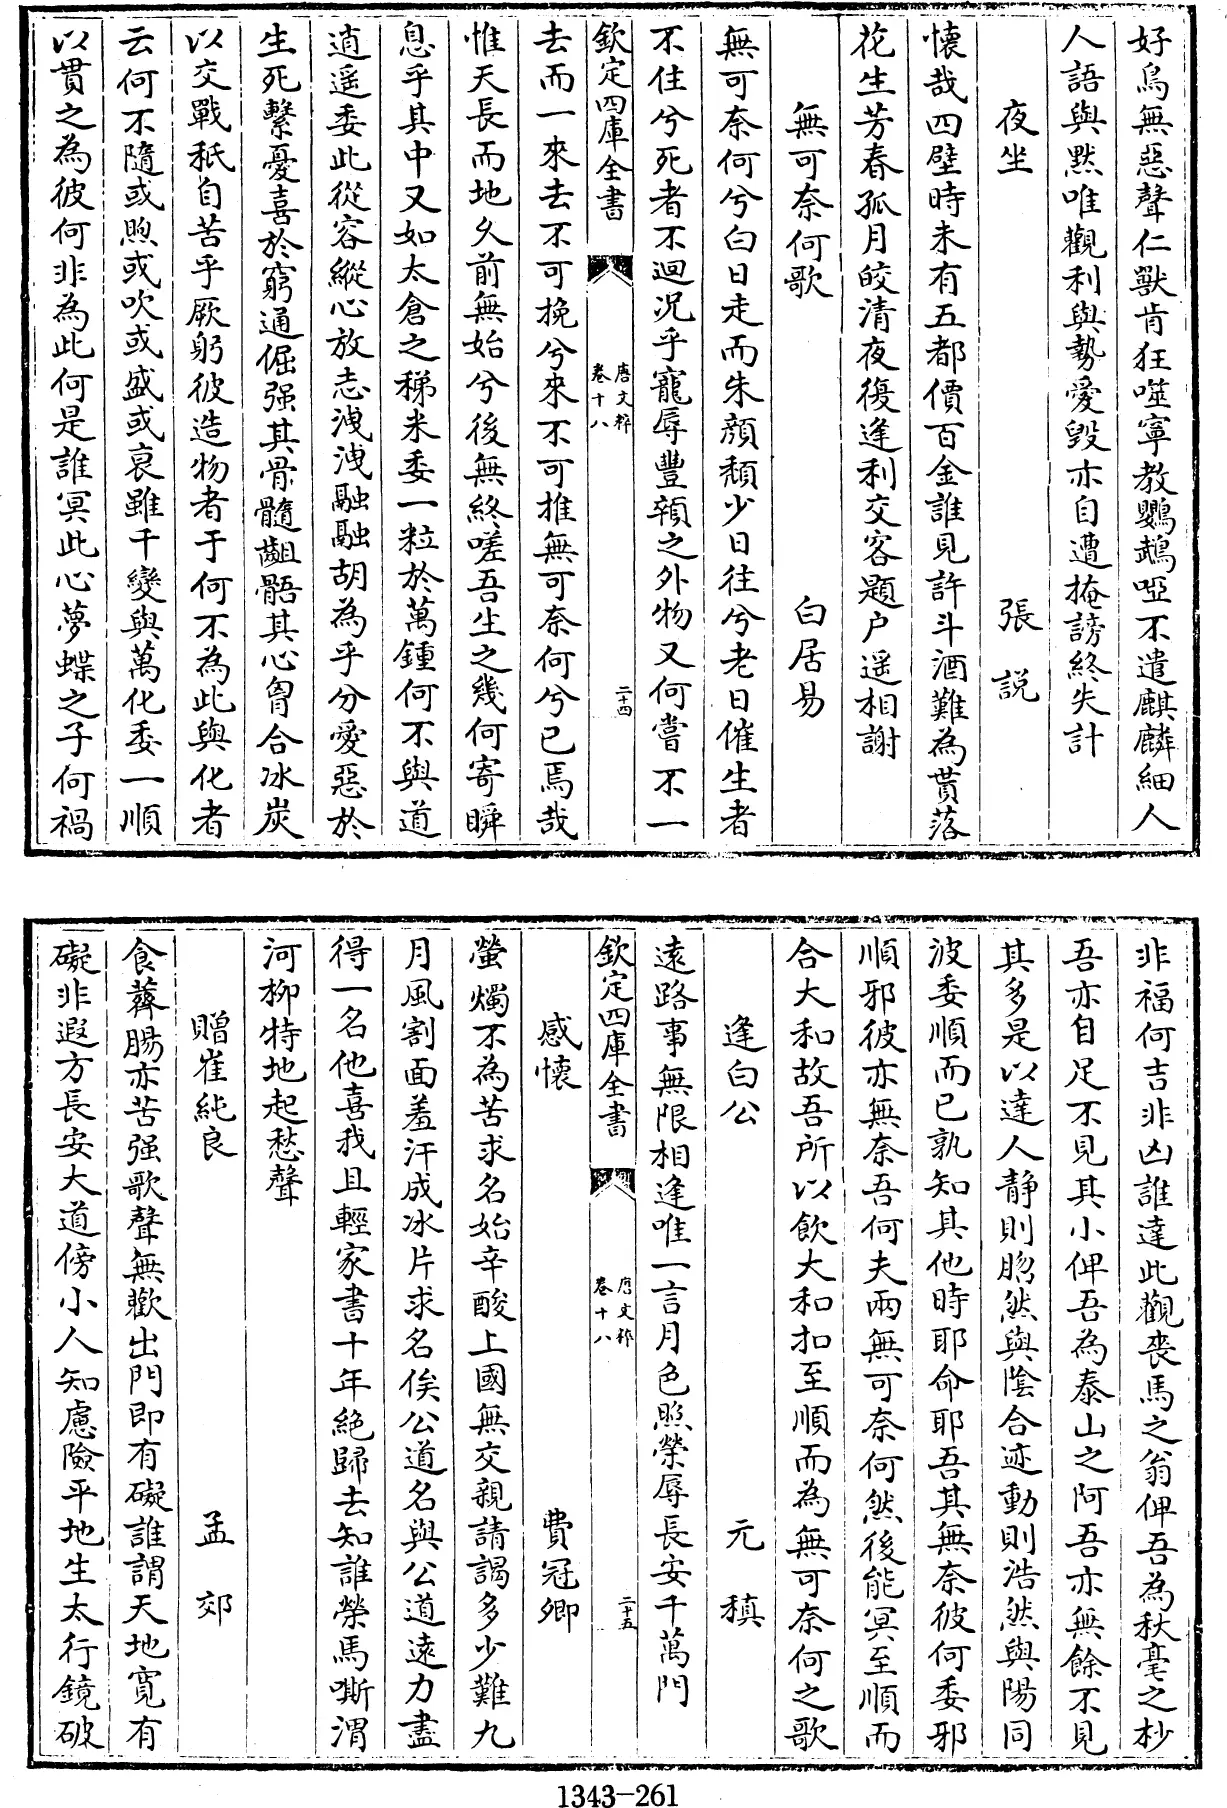 好鳥無惡聲仁獸肯狂噬寧教鸚鵡啞不遣麒麟細人
人語與默唯觀利與勢愛毀亦自遭掩謗終失計
夜坐 張說
懷哉四壁時未有五都價百金誰見許斗酒難為貰落
花生芳春孤月皎清夜復逢利交客題户遥相謝
無可奈何歌 白居易
無可奈何兮白日走而朱顔頽少日往兮老日催生者
不住兮死者不迴况乎寵辱豐顇之外物又何嘗不一
欽定四庫全書 唐文粹 卷十八 二十四
去而一來去不可挽兮來不可推無可奈何兮已焉哉
惟天長而地久前無始兮後無終嗟吾生之幾何寄瞬
息乎其中又如太倉之稊米委一粒於萬鍾何不與道
逍遥委此從容縱心放志洩洩融融胡為乎分愛惡於
生死繫憂喜於窮通倔强其骨髓齟齬其心胷合冰炭
以交戰秖自苦乎厥躬彼造物者于何不為此與化者
云何不隨或喣或吹或盛或衰雖千變與萬化委一順
以貫之為彼何非為此何是誰冥此心夢蝶之子何禍
非福何吉非凶誰達此觀喪馬之翁俾吾為秋毫之杪
吾亦自足不見其小俾吾為泰山之阿吾亦無餘不見
其多是以達人靜則脗然與陰合迹動則浩然與陽同
波委順而已孰知其他時耶命耶吾其無奈彼何委邪
順邪彼亦無奈吾何夫兩無可奈何然後能冥至順而
合大和故吾所以飲大和扣至順而為無可奈何之歌
逢白公 元稹
遠路事無限相逢唯一言月色照榮辱長安千萬門
欽定四庫全書 唐文粹 卷十八 二十五
感懷 費冠卿
螢燭不為苦求名始辛酸上國無交親請謁多少難九
月風割面羞汗成冰片求名俟公道名與公道遠力盡
得一名他喜我且輕家書十年絶歸去知誰榮馬嘶渭
河柳特地起愁聲
贈崔純良 孟郊
食薺腸亦苦强歌聲無歡出門即有礙誰謂天地寛有
礙非遐方長安大道傍小人知慮險平地生太行鏡破
1343-261